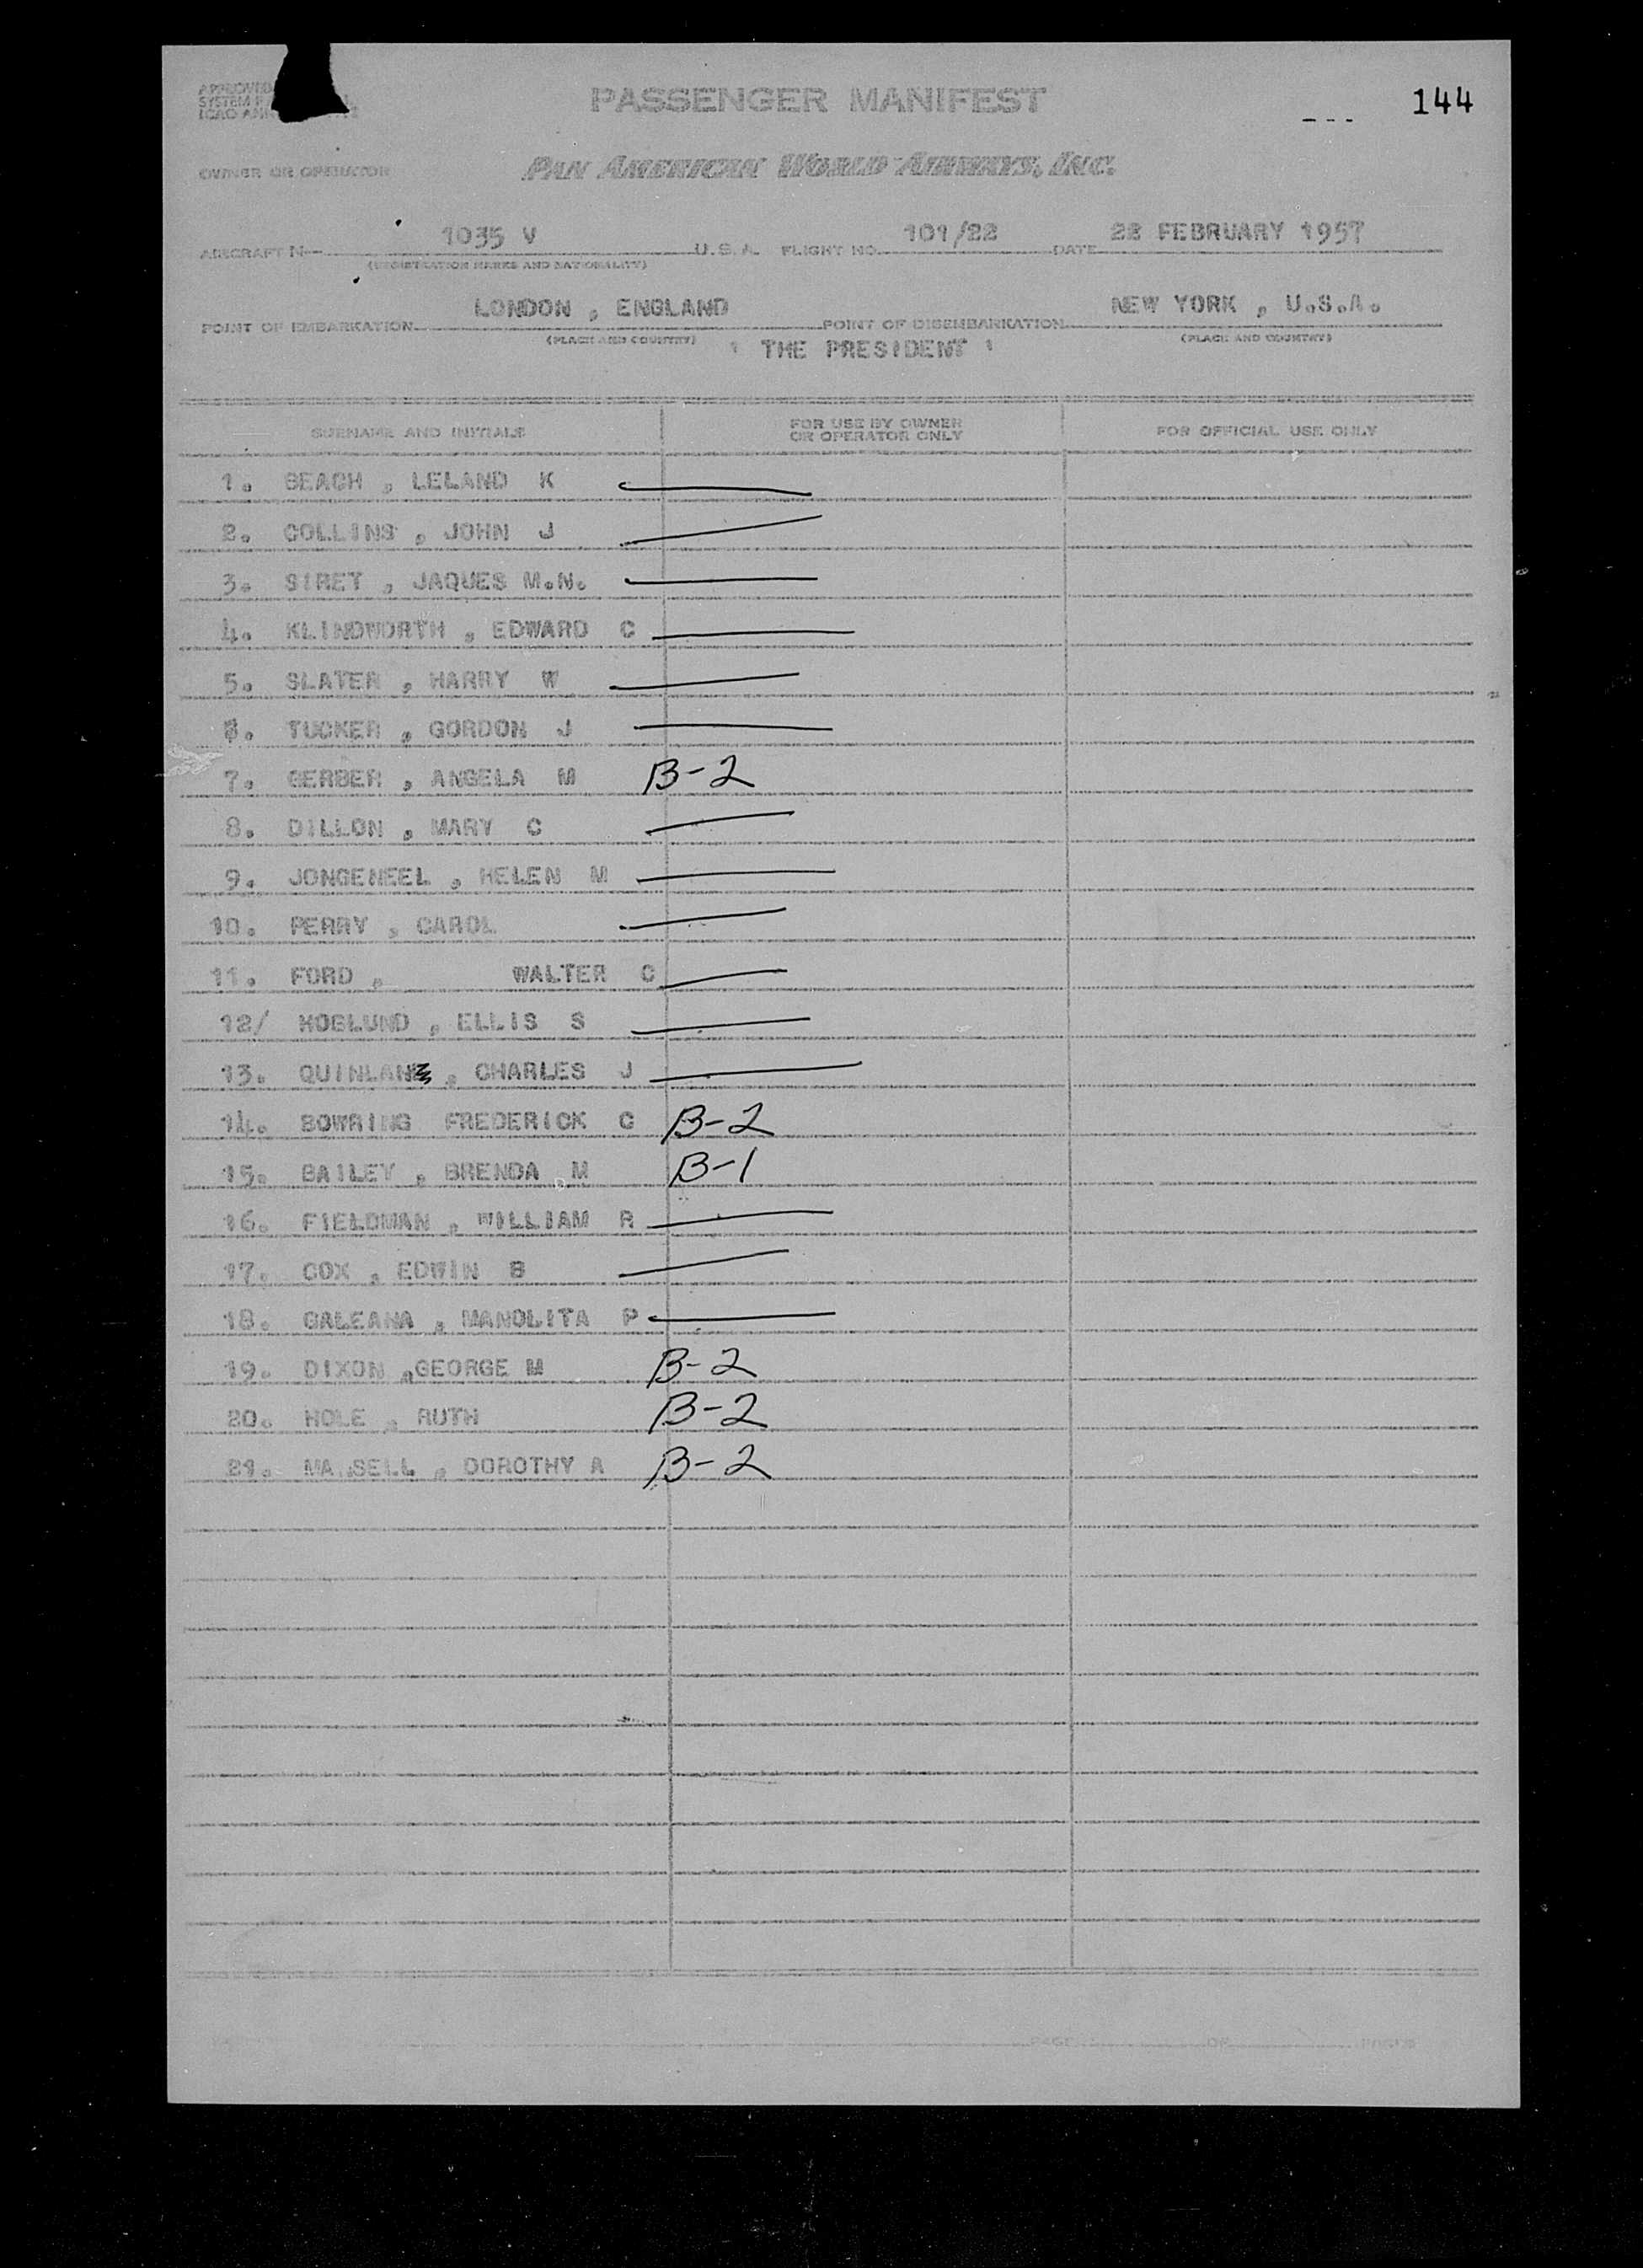 APPROVED
SYSTEM
ICAO
PASSENGER MANIFEST
144
OWNER OR OPERATOR
PAN AMERICAN WORLD AIRWAYS, INC.
AIRCRAFT N- 1035 V U.S.A. FLIGHT NO. 101/22 DATE 22 FEBRUARY 1957
(REGISTRATION MARKS AND NATIONALITY)
POINT OF EMBARKATION LONDON , ENGLAND POINT OF DISEMBARKATION NEW YORK , U.S.A.
(PLACE AND COUNTRY) (PLACE AND COUNTRY)
' THE PRESIDENT '
SURNAME AND INITIALS FOR USE BY OWNER OR OPERATOR ONLY FOR OFFICIAL USE ONLY
1. BEACH , LELAND K
2. COLLINS , JOHN J
3. SIRET , JAQUES M.N.
4. KLINDWORTH , EDWARD C
5. SLATER , HARRY W
6. TUCKER , GORDON J
7. GERBER , ANGELA M B-2
8. DILLON , MARY C
9. JONGENEEL , HELEN M
10. PERRY , CAROL
11. FORD , WALTER C
12/ HOGLUND , ELLIS S
13. QUINLAN , CHARLES J
14. BOWRING FREDERICK C B-2
15. BAILEY , BRENDA M B-1
16. FIELDMAN , WILLIAM R
17. COX , EDWIN B
18. GALEANA , MANOLITA P
19. DIXON ,GEORGE M B-2
20. HOLE , RUTH B-2
21. , DOROTHY A B-2
PAGE OF PAGES